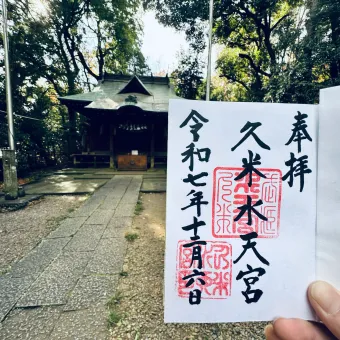 奉拝
久米水天宮
令和七年十二月六日